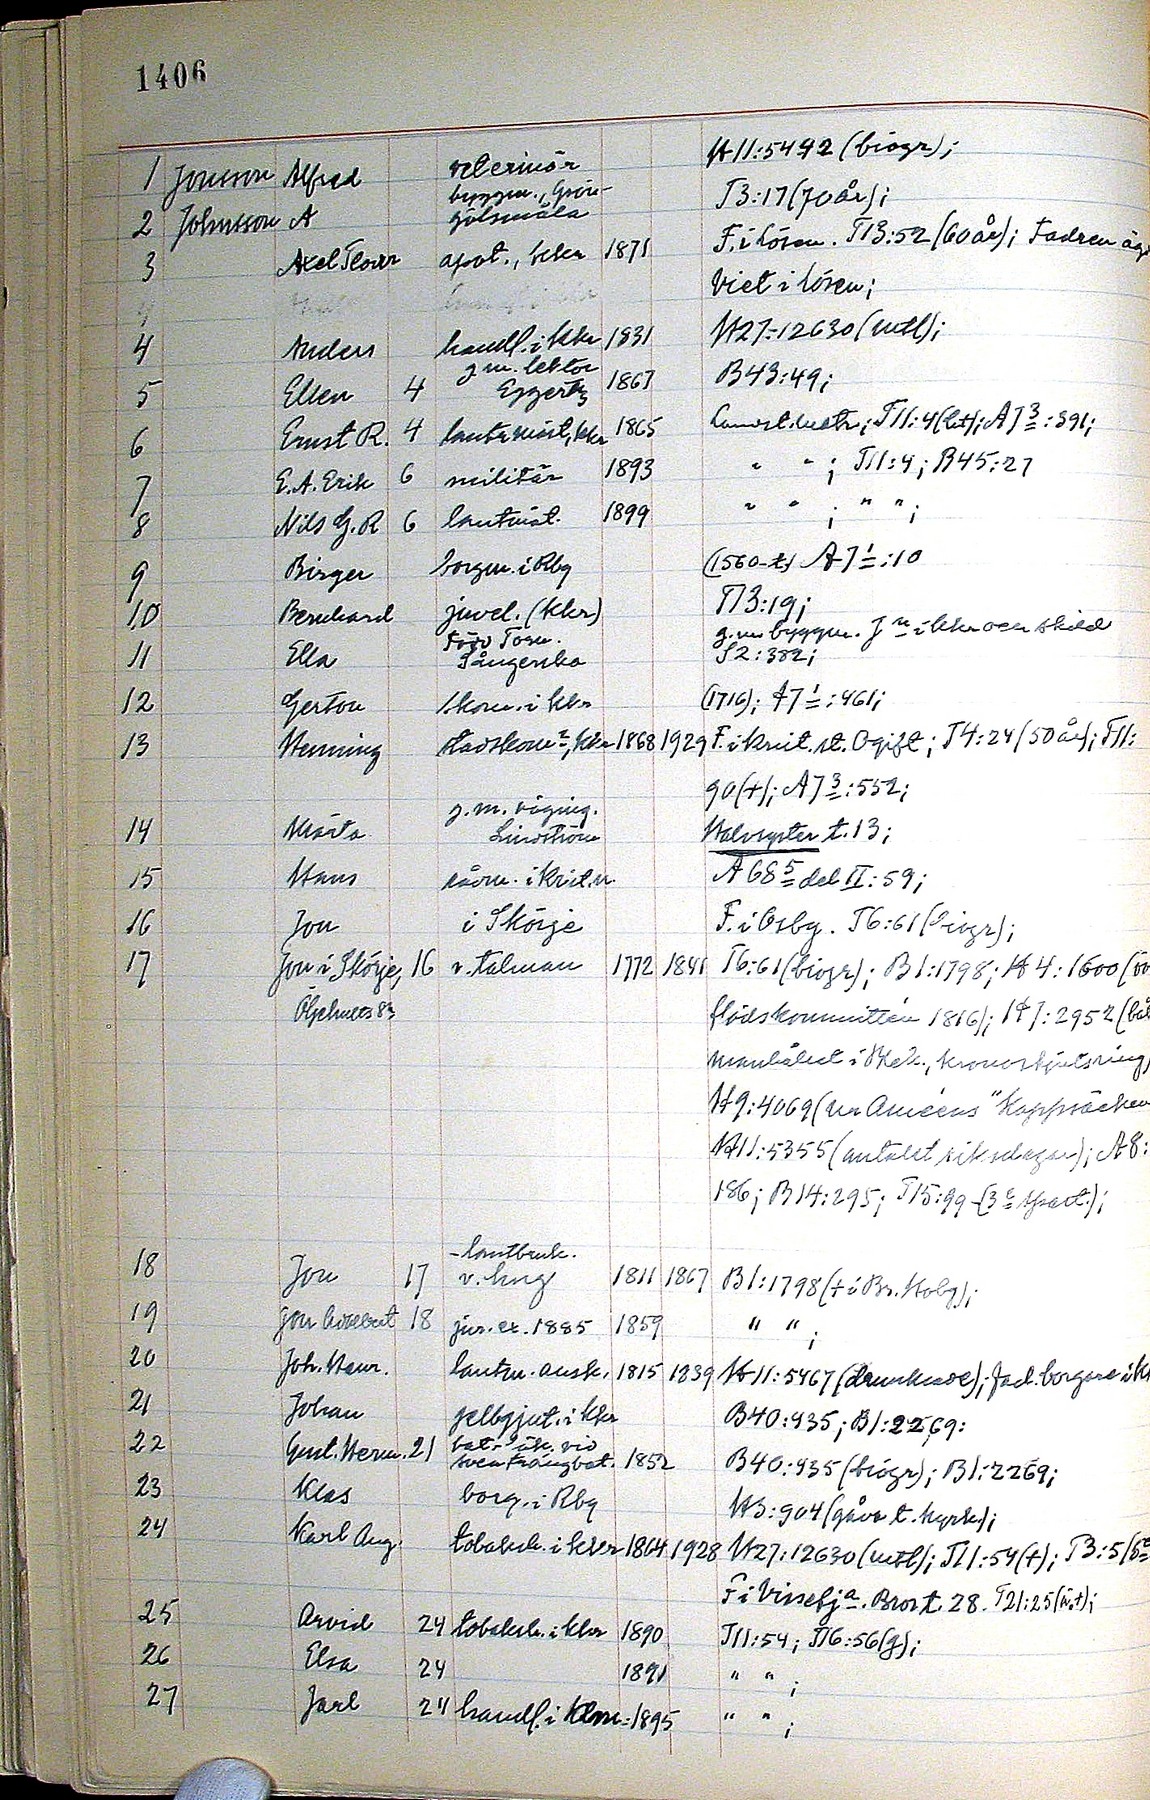 1406
1 Jonsson Alfred veterinär H11:5492 (biogr);
2 Johnsson A byggm., Grön-
gölsmåla T3:17 (70 år);
3 Axel Teodor apot., kkr 1871 F. i Lösen. T13:52 (60 år); Fadren äg
Viet i Lösen;
4 Anders handl. i kkr 1831 H27:12630 (mtl);
5 Ellen 4 g.m. lektor
Eggertz 1867 B43:49;
6 Ernst R. 4 lantmät, kkr 1865 T11:4 (bst); A7 3:391;
7 E.A. Erik 6 militär 1893 " " ; T11:4; B45:27
8 Nils G.R 6 lantmät. 1899 " " ; " " ;
9 Birger borgm. i Rbg (1560-t) A7 1:10
10 Bernhard juvel. (kkr) T13:19;
11 Ella född Torn.
Sångerska g.m. byggm. J n i kkr men skild
S2:382;
12 Gerton skom. i kkr (1716); A7 1:461;
13 Henning stadskomr, kkr 1868 1929 F. i krist.st. Ogift; T4:24 (50 år); T11:
90 (+); A7 3:552;
14 Märta g.m. våging.
Lindström Halvsyster t. 13;
15 Hans rådm. i krist.n A68 5 del II:59;
16 Jon i Skörje F. i Osby. T6:61 (biogr);
17 Jon i Skörje, 16 v. talman 1772 1841 T6:61 (biogr); B1:1798; H4:1600 (
Öljehults Sn flödskommittén 1816); H7:2952 (
i Blek., kronoskjutsning)
H9:4069 (ur Améens "Kappsäcken
H11:5355 (antalet riksdagar); A8:
186; B14:295; T15:99 (3 e );
18 Jon 17 -lantbruk.
v. hmg 1811 1867 B1:1798 (+ i Br. Hoby);
19 Jon Adelbert 18 jur.ex. 1885 1859 " " ;
20 Joh. Henr. lantm. ausk. 1815 1839 H11:5467 (drunknade); fad. borgare i K
21 Johan gelbgjut. i kkr B40:435; B1:2269:
22 Gust. Herm. 21 bat. läk. vid
Svea trängbat. 1852 B40:435 (biogr); B1:2269;
23 Klas borg. i Rbg H5:904 (gåva t. kyrk.);
24 Karl Aug. tobaksh. i kkr 1864 1928 H27:12630 (mtl); T11:54 (+); T3:5 (
F i Vissefja. Bror t. 28. T21:25 (
25 Arvid 24 tobaksh. i kkr 1890 T11:54; T16:56 (g);
26 Elsa 24 1891 " " ;
27 Jarl 24 handl. i Klm. 1895 " " ;